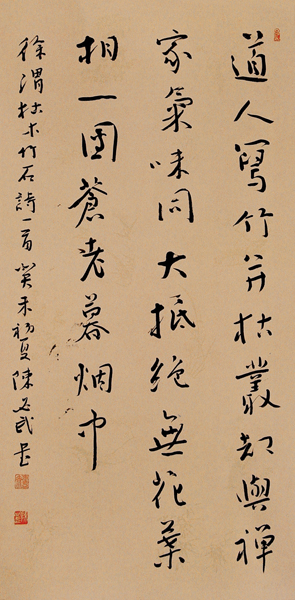 道人寫竹并枯叢却與禪
家氣味同大抵絕無花葉
相一團蒼老暮烟中
徐渭枯木竹石詩一首癸未初夏陳必武書